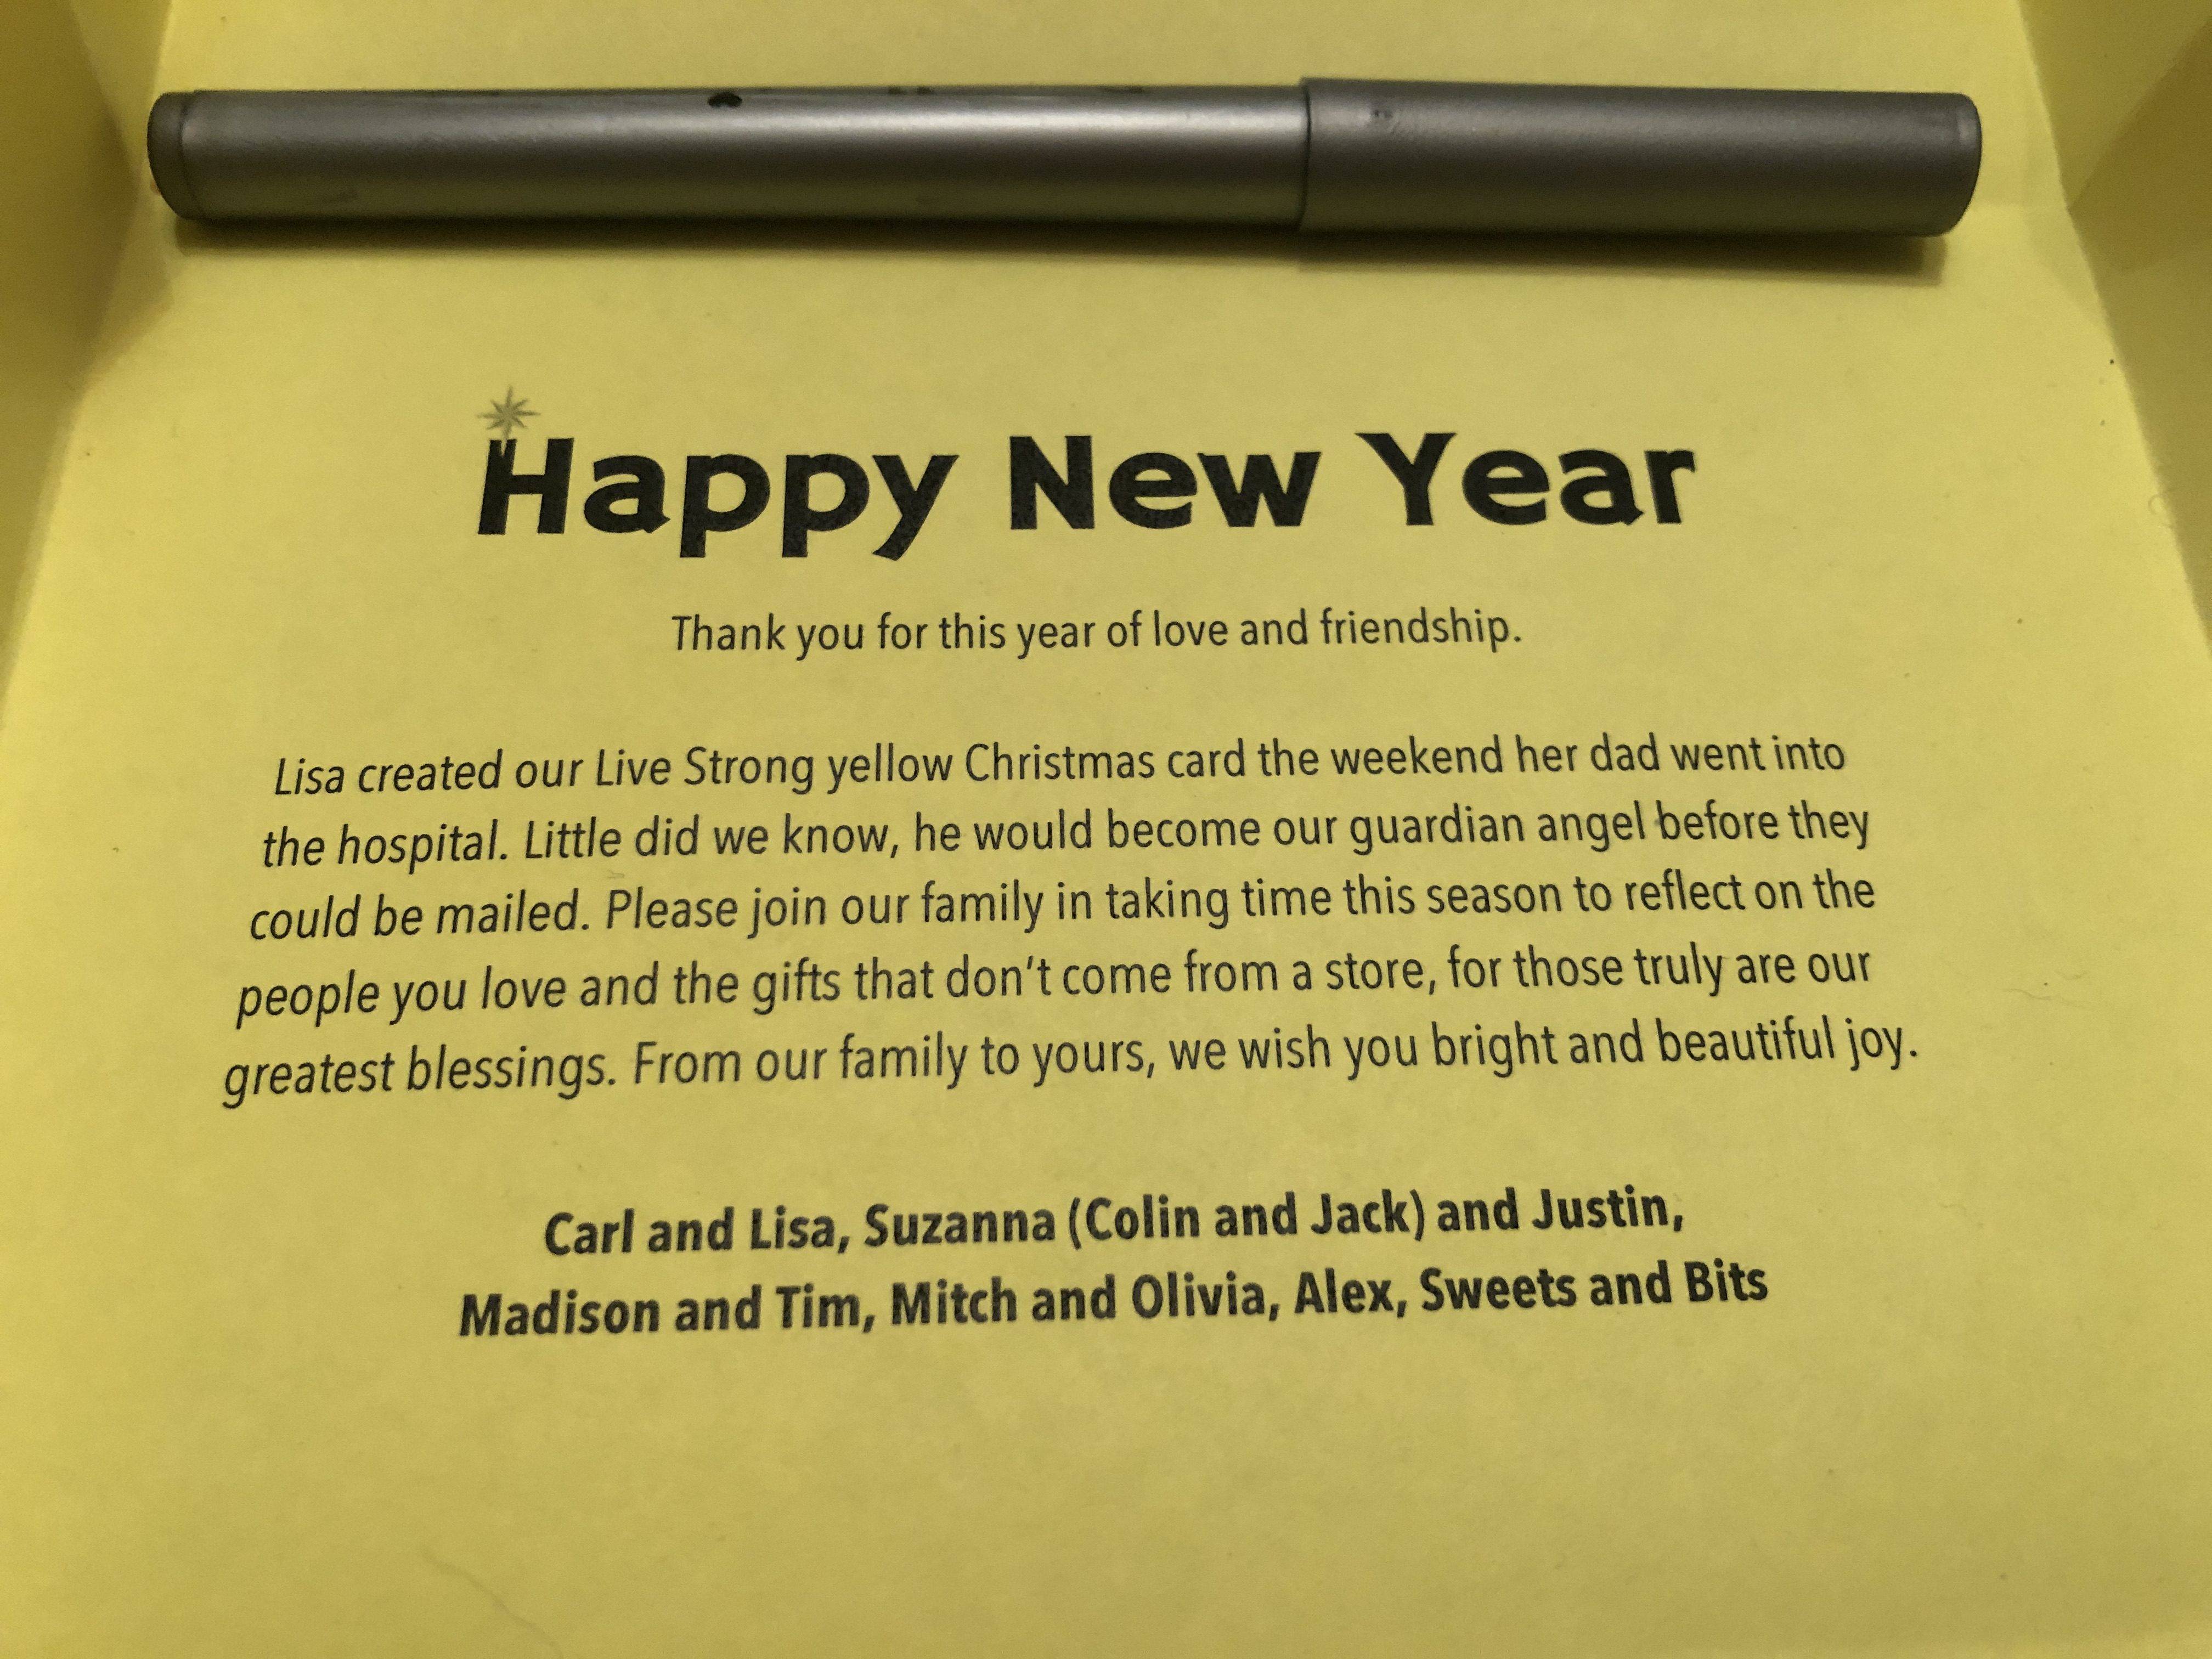 Happy New Year
Thank you for this year of love and friendship.
Lisa created our Live Strong yellow Christmas card the weekend her dad went into
the hospital. Little did we know, he would become our guardian angel before they
could be mailed. Please join our family in taking time this season to reflect on the
people you love and the gifts that don't come from a store, for those truly are our
greatest blessings. From our family to yours, we wish you bright and beautiful joy.
Carl and Lisa, Suzanna (Colin and Jack) and Justin,
Madison and Tim, Mitch and Olivia, Alex, Sweets and Bits